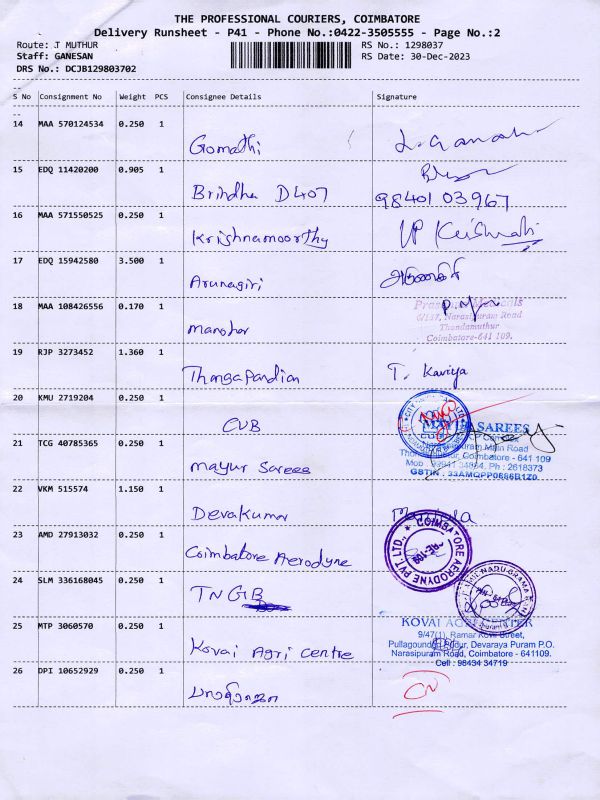 THE PROFESSIONAL COURIERS, COIMBATORE
Delivery Runsheet - P41 - Phone No.:0422-3505555 - Page No.:2
Route: J MUTHUR RS No.: 1298037
Staff: GANESAN RS Date: 30-Dec-2023
DRS No.: DCJB129803702
S No Consignment No Weight PCS Consignee Details Signature
14 MAA 570124534 0.250 1
Gomathi
15 EDQ 11420200 0.905 1
Brindha D407 98401 03967
16 MAA 571550525 0.250 1
Krishnamoorthy
17 EDQ 15942580 3.500 1
Arunagiri
18 MAA 108426556 0.170 1
Manohar
6/147, Narasipuram Road
Thondamuthur
Coimbatore-641 109.
19 RJP 3273452 1.360 1
Thangapandian T. Kaviya
20 KMU 2719204 0.250 1
CUB
SAREES
21 TCG 40785365 0.250 1
Main Road
Coimbatore - 641 109
Ph : 2618373
Mayur Sarees
22 VKM 515574 1.150 1
Devakumar
23 AMD 27913032 0.250 1
Coimbatore Aerodyne
COIMBATORE AERODYNE PVT. LTD.,
24 SLM 336168045 0.250 1
TNGB
25 MTP 3060570 0.250 1
KOVAI AGRI CENTER
9/47(1), Ramar Kovil Street,
Devaraya Puram P.O.
Narasipuram Road, Coimbatore - 641109.
Cell : 98434 34719
Kovai Agri Centre
26 DPI 10652929 0.250 1